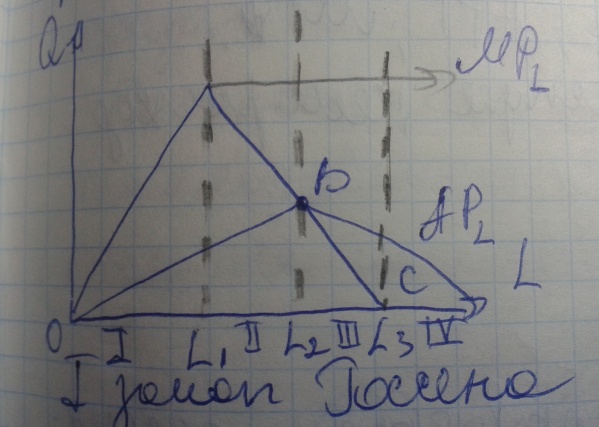 Q
MP_L
D
AP_L
C
L
O I L₁ II L₂ III L₃ IV
I закон Госсена